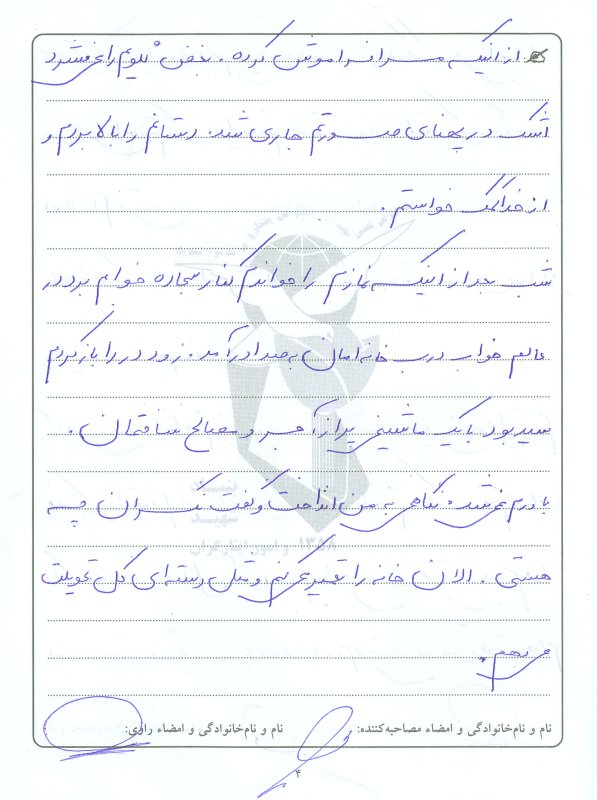 از اینکه مرا فراموش کرده. بغض گلویم را می‌فشرد
اشک در پهنای صورتم جاری شد. دستانم را بالا بردم و
از خدا کمک خواستم.
شب بعد از اینکه نمازم را خواندم کنار سجاده خوابم برد در
عالم خواب درب خانه امان به صدا در آمد. زود در را باز کردم
سید بود با یک ماشین پر از آجر و مصالح ساختمان.
باورم نمی‌شد. نگاهی به من انداخت و گفت نگران چه
هستی. الان خانه را تعمیر می‌کنم و مثل دسته‌ای گل تحویلت
می‌دهم.
نام و نام‌خانوادگی و امضاء مصاحبه‌کننده: نام و نام‌خانوادگی و امضاء راوی:
۴